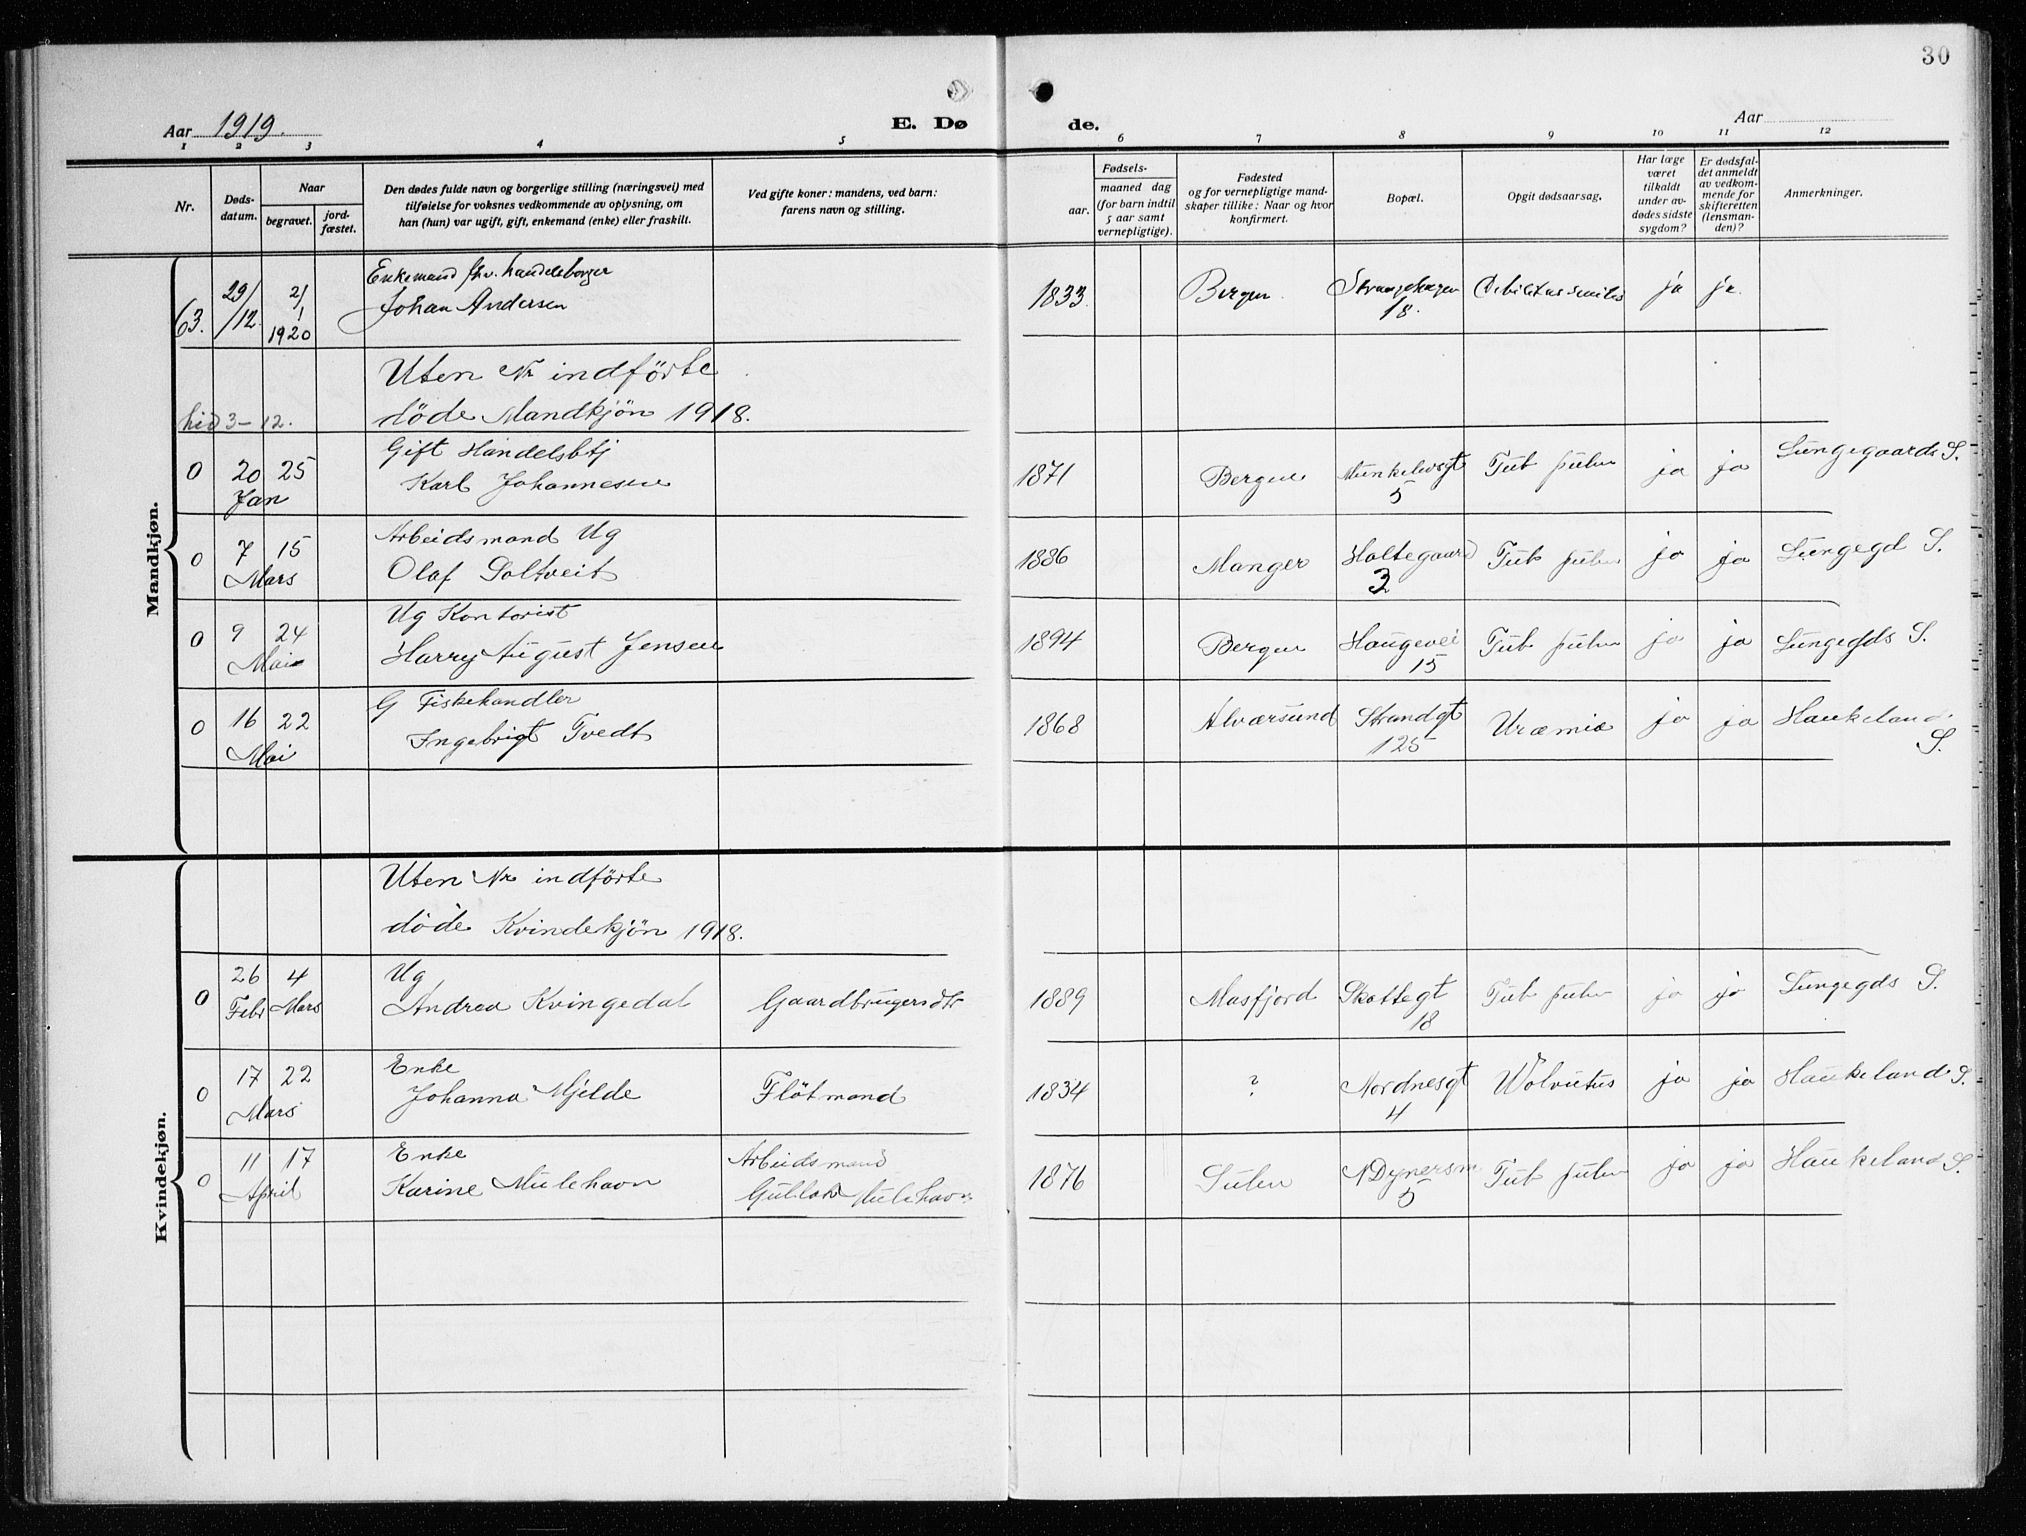 30
Aar 1919.
E. Dø
de.
Aar
1 2 3 4 5 6 7 8 9 10 11 12
Nr.
Døds-
datum.
Naar
begravet.
jord-
fæstet.
Den dødes fulde navn og borgerlige stilling (næringsvei) med
tilføielse for voksnes vedkommende av oplysning, om
han (hun) var ugift, gift, enkemand (enke) eller fraskilt.
Ved gifte koner: mandens, ved barn:
farens navn og stilling.
Fødsels-
aar.
maaned dag
(for barn indtil
5 aar samt
vernepligtige).
Fødested
og for vernepligtige mand-
skaper tillike: Naar og hvor
konfirmert.
Bopæl.
Opgit dødsaarsag.
Har læge
været
tilkaldt
under av-
dødes sidste
sygdom?
Er dødsfal-
det anmeldt
av vedkom-
mende for
skifteretten
(lensman-
den)?
Anmerkninger.
Mandkjøn.
63. 29/12. 2/1 1920
Enkemand fhv. handelsborger
Johan Andersen
1833. Bergen Strangehagen 18. Debilitas senilis ja ja.
Uten Nr indførte
døde Mandkjön 1918.
hid 3-12.
0 20 25 Jan
Gift Handelsbtj
Karl Johannesen
1871 Bergen Munkelivsgt 5 Tub pulm ja ja Lungegaards S.
0 7 15 Mars
Arbeidsmand Ug
Olaf Soltveit
1886 Manger Holtegaard 3 Tub pulm ja ja Lungegd S.
0 9 24 Mai
Ug Kontorist
Harry August Jensen
1894 Bergen Haugevei 15 Tub pulm ja ja Lungegds S.
0 16 22 Mai
G Fiskehandler
Ingebrigt Tvedt
1868 Alversund Strandgt 125 Uræmie ja ja Haukeland S.
Kvindekjøn.
Uten Nr indførte
døde Kvindekjön 1918.
0 26 Febr 4 Mars
Ug
Andrea Kvingedal
Gaardbrugersdtr
1889 Masfjord Skottegt 18 Tub pulm ja ja Lungegds S.
0 17 22 Mars
Enke
Johanna Mjelde
Flötmand
1834 ? Nordnesgt 4 Wolvulus ja ja Haukeland S.
0 11 17 April
Enke
Karine Mulehavn
Arbeidsmand
Gullak Mulehavn
1876 Sulen N Dynersm 5 Tub pulm ja ja Haukeland S.